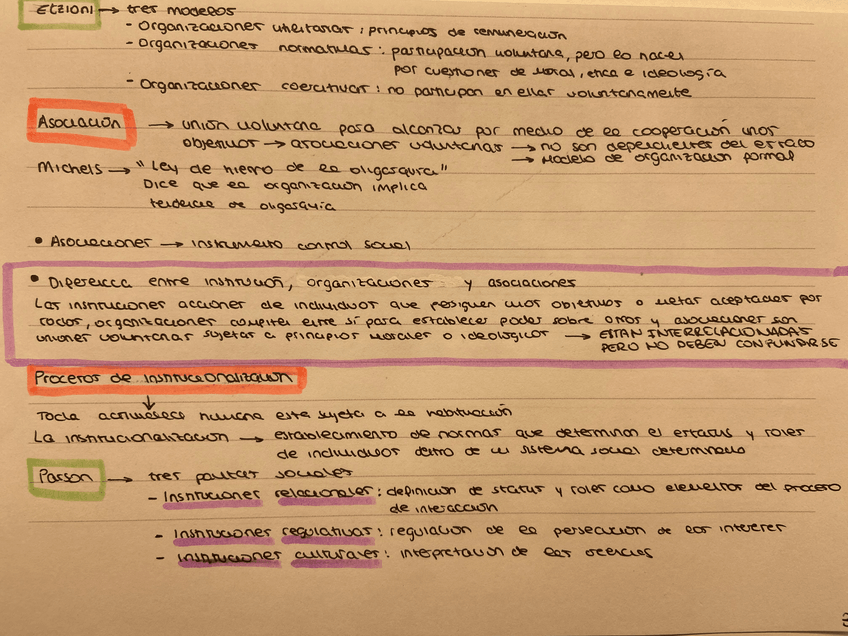 Etzioni → tres modelos
- Organizaciones utilitarias: principios de remuneración
- Organizaciones normativas: participación voluntaria, pero lo hacen
por cuestiones de moral, etica e ideología
- Organizaciones coercitivas: no participan en ellas voluntariamente
Asociación → unión voluntaria para alcanzar por medio de la cooperación unos
objetivos → asociaciones voluntarias → no son dependientes del estado
→ Modelo de organización formal
Michels → "Ley de hierro de la oligarquía"
Dice que la organización implica
tendencia de oligarquía
• Asociaciones → instrumento control social
• Diferencia entre institución, organizaciones y asociaciones
Las instituciones acciones de individuos que persiguen unos objetivos o metas aceptadas por
todos, organizaciones compiten entre sí para establecer poder sobre otros y asociaciones son
uniones voluntarias sujetas a principios morales o ideológicos → ESTAN INTERRELACIONADAS
PERO NO DEBEN CONFUNDIRSE
Procesos de institucionalización
↓
Toda actividad humana esta sujeta a la habituación
La institucionalización → establecimiento de normas que determinan el estatus y roles
de individuos dentro de un sistema social determinado
Parson → tres pautas sociales
- Instituciones relacionales: definición de status y roles como elementos del proceso
de interacción
- Instituciones regulativas: regulación de la persecución de los interes
- Instituciones culturales: interpretación de las creencias